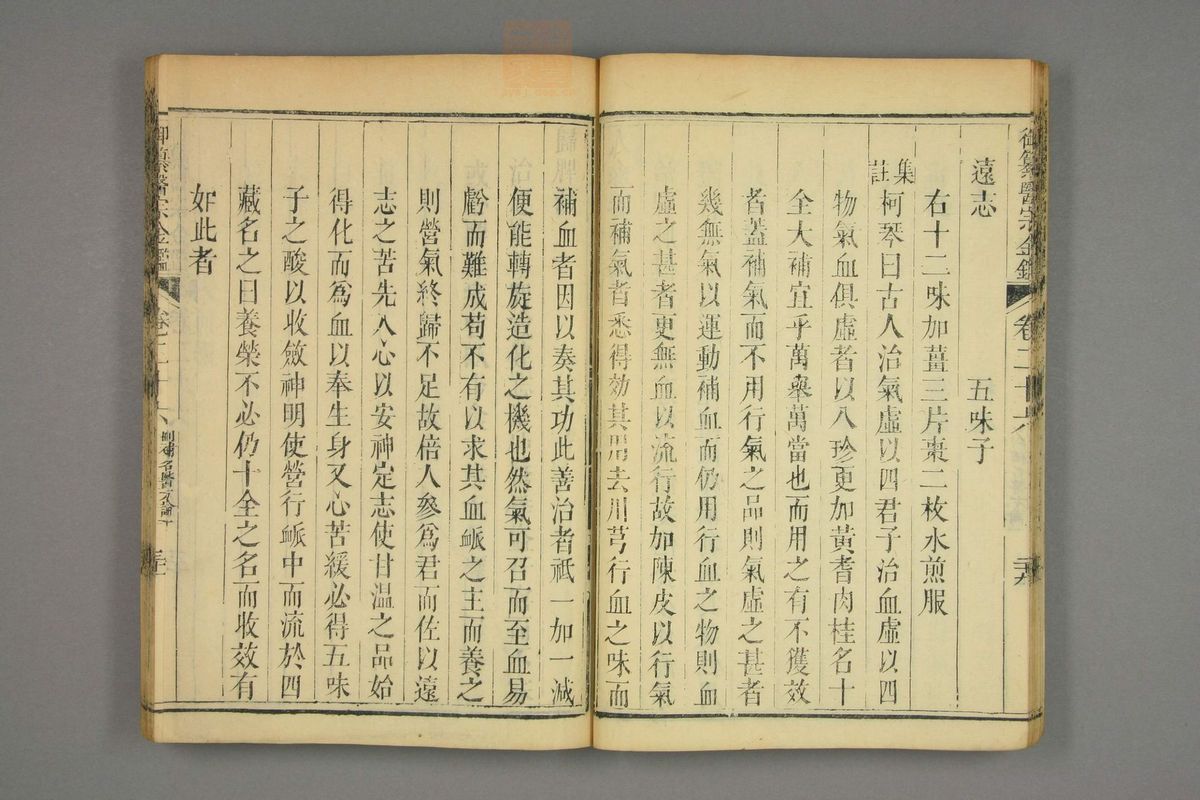 御纂醫宗金鑑 卷二十六
遠志 五味子
右十二味加薑三片棗二枚水煎服
集註
柯琴曰古人治氣虛以四君子治血虛以四
物氣血俱虛者以八珍更加黃耆肉桂名十
全大補宜乎萬舉萬當也而用之有不獲效
者蓋補氣而不用行氣之品則氣虛之甚者
幾無氣以運動補血而仍用行血之物則血
虛之甚者更無血以流行故加陳皮以行氣
而補氣者悉得効其用去川芎行血之味而
補血者因以奏其功此善治者祗一加一減
便能轉旋造化之機也然氣可召而至血易
虧而難成苟不有以求其血脈之主而養之
則營氣終歸不足故倍人參爲君而佐以遠
志之苦先入心以安神定志使甘溫之品始
得化而爲血以奉生身又心苦緩必得五味
子之酸以收斂神明使營行脈中而流於四
藏名之曰養榮不必仍十全之名而收效有
如此者
御纂醫宗金鑑 卷二十六 刪補名醫方論